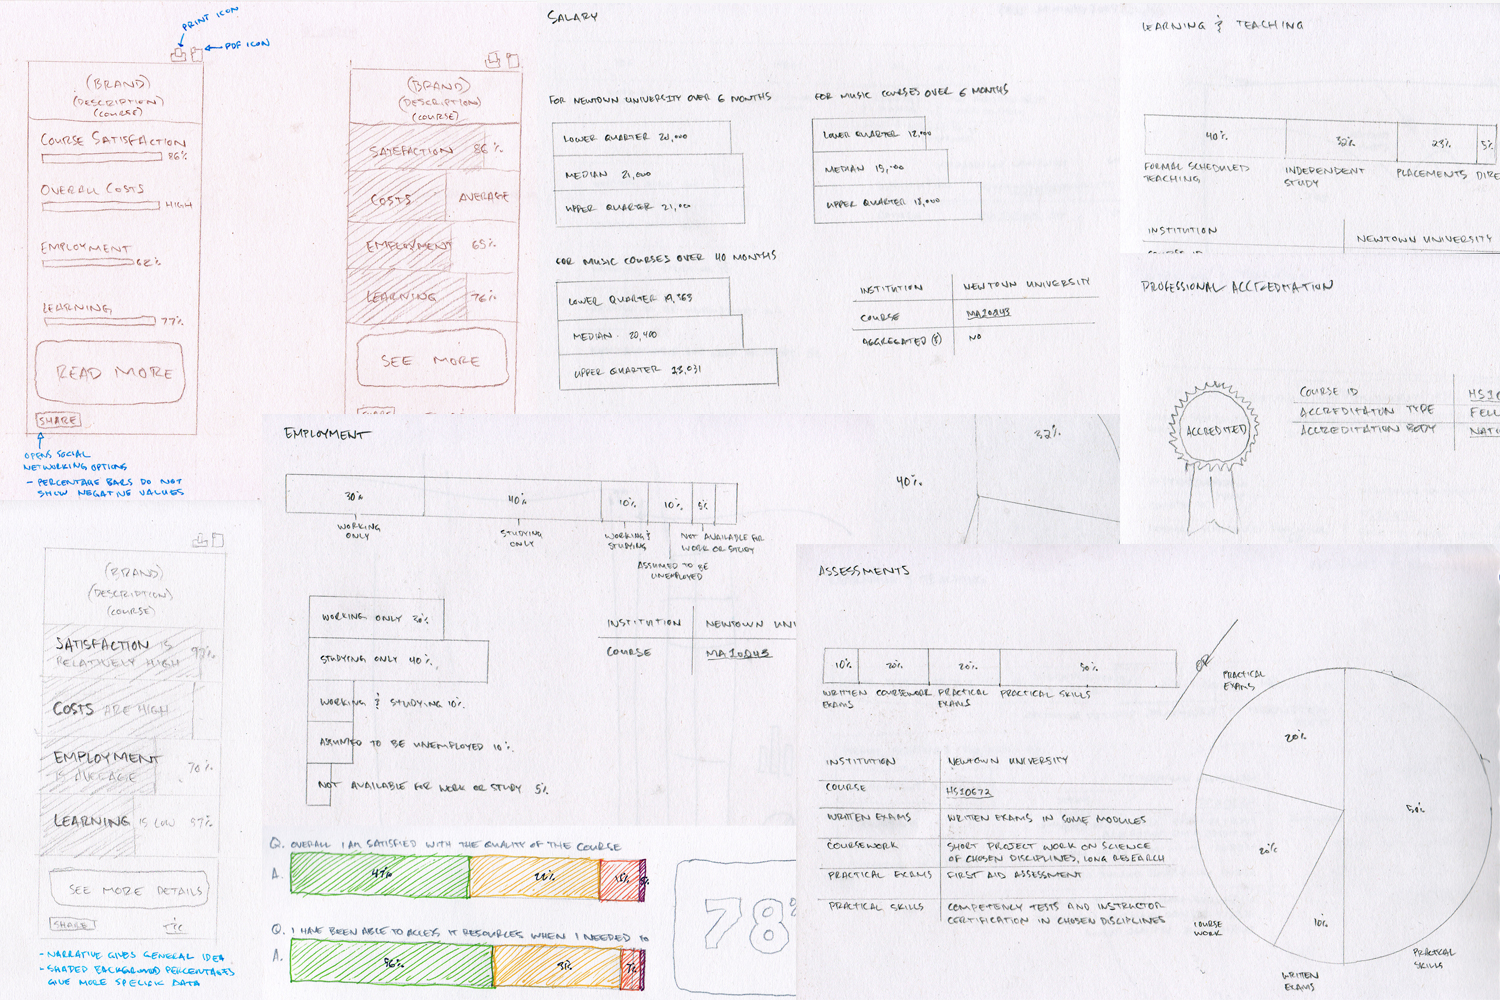 PRINT ICON
PDF ICON
(BRAND)
(DESCRIPTION)
(COURSE)
COURSE SATISFACTION
86%
OVERALL COSTS
HIGH
EMPLOYMENT
62%
LEARNING
77%
READ MORE
SHARE
OPENS SOCIAL
NETWORKING OPTIONS
- PERCENTAGE BARS DO NOT
SHOW NEGATIVE VALUES
(BRAND)
(DESCRIPTION)
(COURSE)
SATISFACTION 86%
COSTS AVERAGE
EMPLOYMENT 65%
LEARNING 76%
SEE MORE
(BRAND)
(DESCRIPTION)
(COURSE)
SATISFACTION IS
RELATIVELY HIGH
COSTS ARE HIGH
EMPLOYMENT
IS AVERAGE
70%
LEARNING IS LOW 57%
SEE MORE DETAILS
SHARE
T&C
- NARRATIVE GIVES GENERAL IDEA
- SHADED BACKGROUND PERCENTAGES
GIVE MORE SPECIFIC DATA
SALARY
FOR NEWTOWN UNIVERSITY OVER 6 MONTHS
LOWER QUARTER 20,000
MEDIAN 21,000
UPPER QUARTER 21,000
FOR MUSIC COURSES OVER 6 MONTHS
LOWER QUARTER 12,000
MEDIAN 15,000
UPPER QUARTER 18,000
FOR MUSIC COURSES OVER 40 MONTHS
LOWER QUARTER 19,363
MEDIAN 20,400
UPPER QUARTER 23,031
INSTITUTION NEWTOWN UNIVERSITY
COURSE MA10243
AGGREGATED (S) NO
LEARNING & TEACHING
40% 32% 23% 5%
FORMAL SCHEDULED
TEACHING
INDEPENDENT
STUDY
PLACEMENTS
DIRE
INSTITUTION NEWTOWN UNIVERSITY
PROFESSIONAL ACCREDITATION
ACCREDITED
COURSE ID HS10
ACCREDITATION TYPE FELL
ACCREDITATION BODY NATI
EMPLOYMENT
30% 40% 10% 10% 5%
WORKING
ONLY
STUDYING
ONLY
WORKING &
STUDYING
ASSUMED TO BE
UNEMPLOYED
NOT AVAILABLE FOR
WORK OR STUDY
WORKING ONLY 30%
STUDYING ONLY 40%
WORKING & STUDYING 10%
ASSUMED TO BE UNEMPLOYED 10%
NOT AVAILABLE FOR WORK OR STUDY 5%
INSTITUTION NEWTOWN UNI
COURSE MA10243
40%
32%
Q. OVERALL I AM SATISFIED WITH THE QUALITY OF THE COURSE
A. 47% 22% 15%
Q. I HAVE BEEN ABLE TO ACCESS IT RESOURCES WHEN I NEEDED TO
A. 56% 31% 7%
78%
ASSESSMENTS
10% 20% 20% 50%
WRITTEN
EXAMS
COURSEWORK
PRACTICAL
EXAMS
PRACTICAL SKILLS
OR
INSTITUTION NEWTOWN UNIVERSITY
COURSE HS10672
WRITTEN EXAMS WRITTEN EXAMS IN SOME MODULES
COURSEWORK SHORT PROJECT WORK ON SCIENCE
OF CHOSEN DISCIPLINES, LONG RESEARCH
PRACTICAL EXAMS FIRST AID ASSESSMENT
PRACTICAL SKILLS COMPETENCY TESTS AND INSTRUCTOR
CERTIFICATION IN CHOSEN DISCIPLINES
PRACTICAL
EXAMS
20%
50%
20%
10%
COURSE
WORK
WRITTEN
EXAMS
PRACTICAL
SKILLS